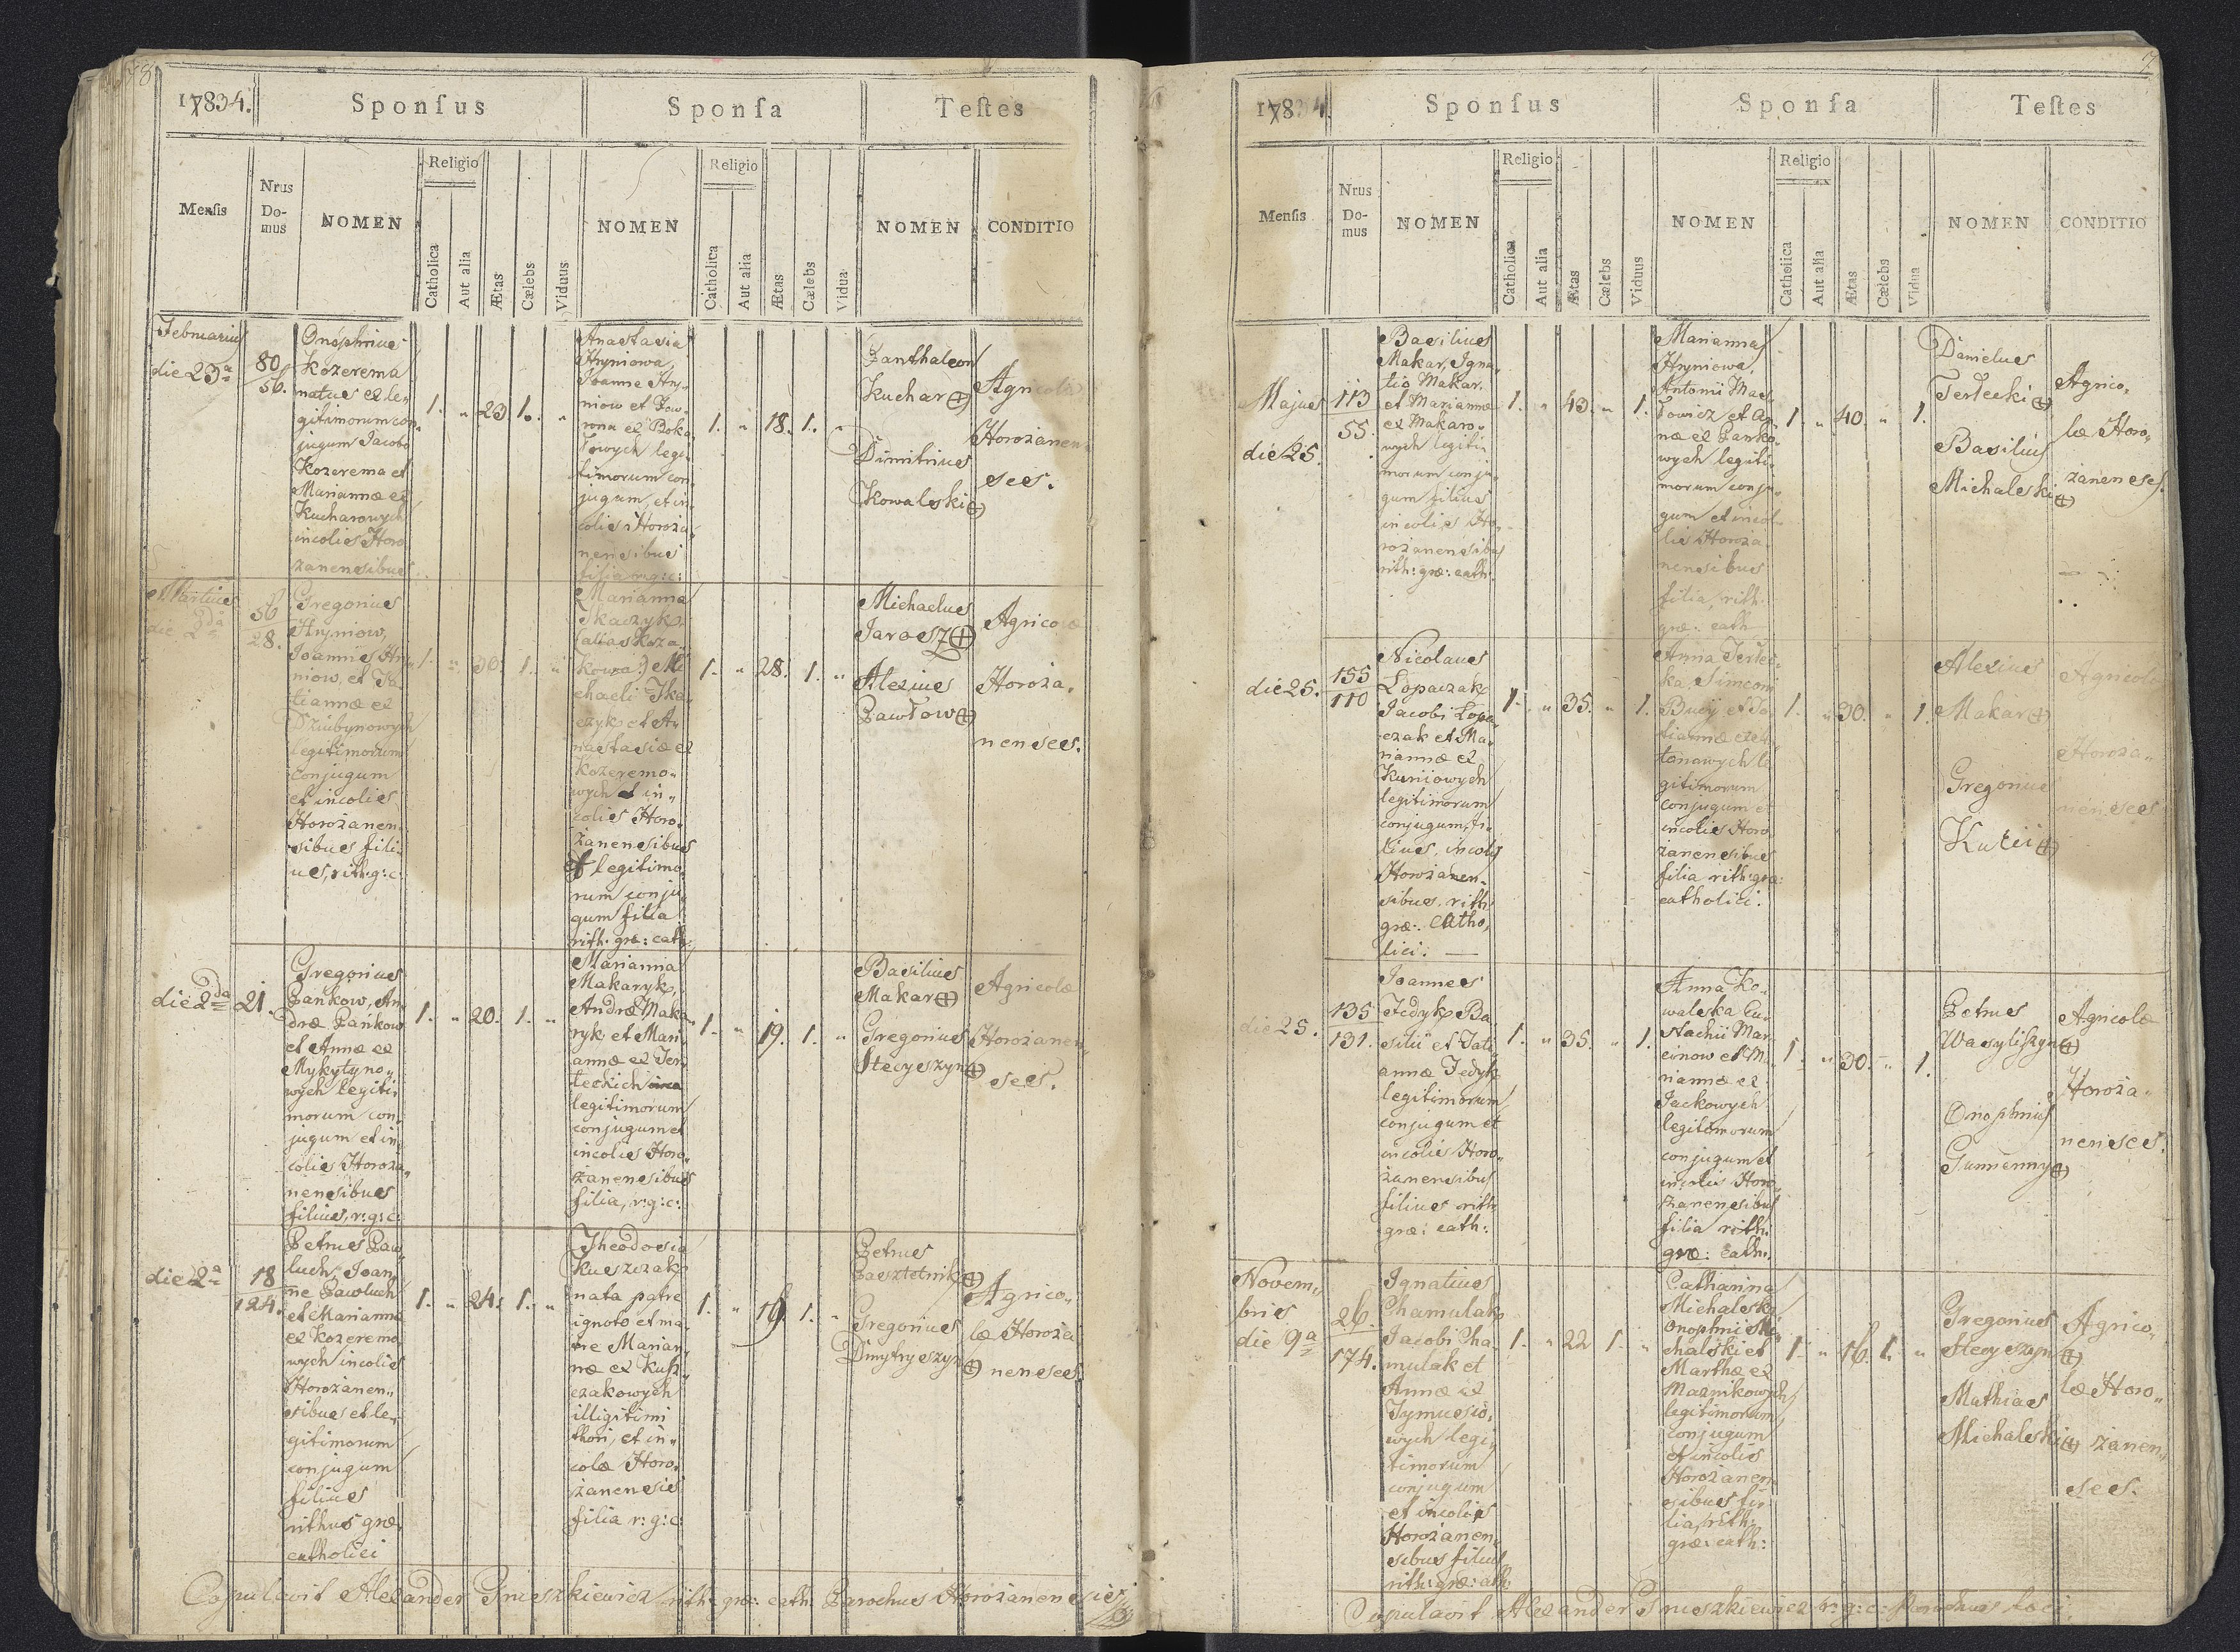 78
17834.
Sponſus
Sponſa
Teſtes
Menſis
Nrus
Do-
mus
NOMEN
Religio
Catholica
Aut alia
Ætas
Cælebs
Viduus
NOMEN
Religio
Catholica
Aut alia
Ætas
Cælebs
Vidua
NOMEN
CONDITIO
Februarius
die 23a
80
56.
Onóphrius
Kozerema
natus ex le„
gitimorum con„
jugum Jacobo
Kozerema et
Mariannæ ex
Kucharowych
incolis Horo
żanensibus
1. „ 23 1. „
Anastasia
Hryniowa,
Joanne Hry„
niow et Paw„
rona ex Boka
łowych legi„
timorum con„
jugum, et in„
colis Horoża„
nensibus
filia r:g:c:
1. „ 18. 1. „
Panthaleon
Kuchar
Dimitrius
Kowalski
Agricolæ
Horożanen„
ses.
Martius
die 2da
56
28.
Gregorius
Hryniow,
Joannis Hry„
niow, et Ta
tiannæ ex
Dziubynowych
legitimorum
conjugum
et incolis
Horożanen„
sibus fili„
us, rith:g:c:
1. „ 30. 1. „
Marianna
Tkaczyk
(alias Koza„
kowa) Mi
chaeli Tka„
czyk et A„
nastasiæ ex
Kozeremo„
wych et in„
colis Horo„
żanensibus
et legitimo„
rum conju„
gum filia
rith: græ: cath:
1. „ 28. 1. „
Michaelus
Jarosz
Alexius
Pawłow
Agricolæ
Horoża„
nenses.
die 2da
21.
Gregorius
Pańkow, An„
dræ Pańkow
et Annæ ex
Mykytyno„
wych legiti„
morum con„
jugum et in„
colis Horoża„
nensibus
filius, r:g:c:
1. „ 20. 1. „
Marianna
Makaryk,
Andræ Maka„
ryk et Mari„
annæ ex Ter„
leckich
legitimorum
conjugum et
incolis Horo„
żanensibus
filia, r:g:c:
1. „ 19. 1. „
Basilius
Makar
Gregorius
Stecyszyn
Agricolæ
Horożanen„
ses.
die 2a
18
124.
Petrus Paw„
luch, Joan„
ne Pawluch
et Marianna
ex Kozeremo
wych incolis
Horożanen„
sibus et le„
gitimorum
conjugum
filius
rithus græ:
catholici
1. „ 24. 1. „
Theodosia
Kuszczak
nata patre
ignoto et ma„
tre Marian„
næ ex Kusz„
czakowych
illigitimi
thori, et in„
colæ Horo„
żanensis
filia r:g:c:
1. „ 19. 1. „
Petrus
Pasztetnik
Gregorius
Dmytryszyn
Agrico„
læ Horoża
nenses.
Copulavit Alexander Pruszkiewicz rith: græ: cath: Parochus Horożanensis
7
17834.
Sponſus
Sponſa
Teſtes
Menſis
Nrus
Do-
mus
NOMEN
Religio
Catholica
Aut alia
Ætas
Cælebs
Viduus
NOMEN
Religio
Catholica
Aut alia
Ætas
Cælebs
Vidua
NOMEN
CONDITIO
Majus
die 25.
113
55.
Basilius
Makar, Igna„
tio Makar,
et Marianna
ex Makaro„
wych legiti„
morum conju„
gum filius
incolis Ho„
rożanensibus
rith: græ: cath:
1. „ 43. „ 1.
Marianna
Hryniowa,
Antonii Mac„
łowicz et An
næ ex Panko„
wych legiti„
morum conju„
gum et inco„
lis Horoża„
nensibus
filia, rith:
græ: cath
1. „ 40. „ 1.
Danielus
Terlecki
Basilius
Michalski
Agrico„
læ Horo„
żanenses.
die 25.
155
110
Nicolaus
Lopaczak
Jacobi Lopa„
czak et Ma„
riannæ ex
Kuniowych
legitimorum
conjugum, fi„
lius, incolis
Horożanen„
sibus. rith:
græ: Catho„
lici. —
1. „ 35. „ 1.
Anna Terlec„
ka, Simeoni
Bucij et Ta„
tiannæ ex
tonawych le
gitimorum
conjugum et
incolis Horo
żanensibus
filia rith: græ:
catholici.
1. „ 30. „ 1.
Alexius
Makar
Gregorius
Kulii
Agricolæ
Horoża„
nenses
die 25.
135
131.
Joannes
Fedyk Ba
silii et Tati
annæ Fedyk
legitimorum
conjugum et
incolis Horo„
żanensibus
filius rith:
græ: cath:
1. „ 35. „ 1.
Anna Ko„
walska Eu„
stachii Mar„
cinow et Ma„
riannæ ex
Jackowych
legitimorum
conjugum et
incolis Horo„
żanensibus
filia rith:
græ: cath:
1. „ 30. „ 1.
Petrus
Wasyliszyn
Onophrius
Gumenny
Agricolæ
Horoża„
nenses.
Novem„
bris
die 9a
26.
174.
Ignatius
Chamulak
Jacobi Cha„
mulak et
Annæ ex
Tymusio„
wych legi„
timorum
conjugum
et incolis
Horożanen„
sibus filius
rith: græ: cath:
1. „ 22 1. „
Catharina
Michalska
Onophrii Mi„
chalski et
Marthæ ex
Maznikowych
legitimorum
conjugum
et incolis
Horożanen„
sibus fi„
lia, rith:
græ: cath:
1. „ 16. 1. „
Gregorius
Stecyszyn
Mathias
Michalski
Agrico„
læ Horo„
żanen„
ses.
Copulavit Alexander Pruszkiewicz r: g: c: Parochus loci.